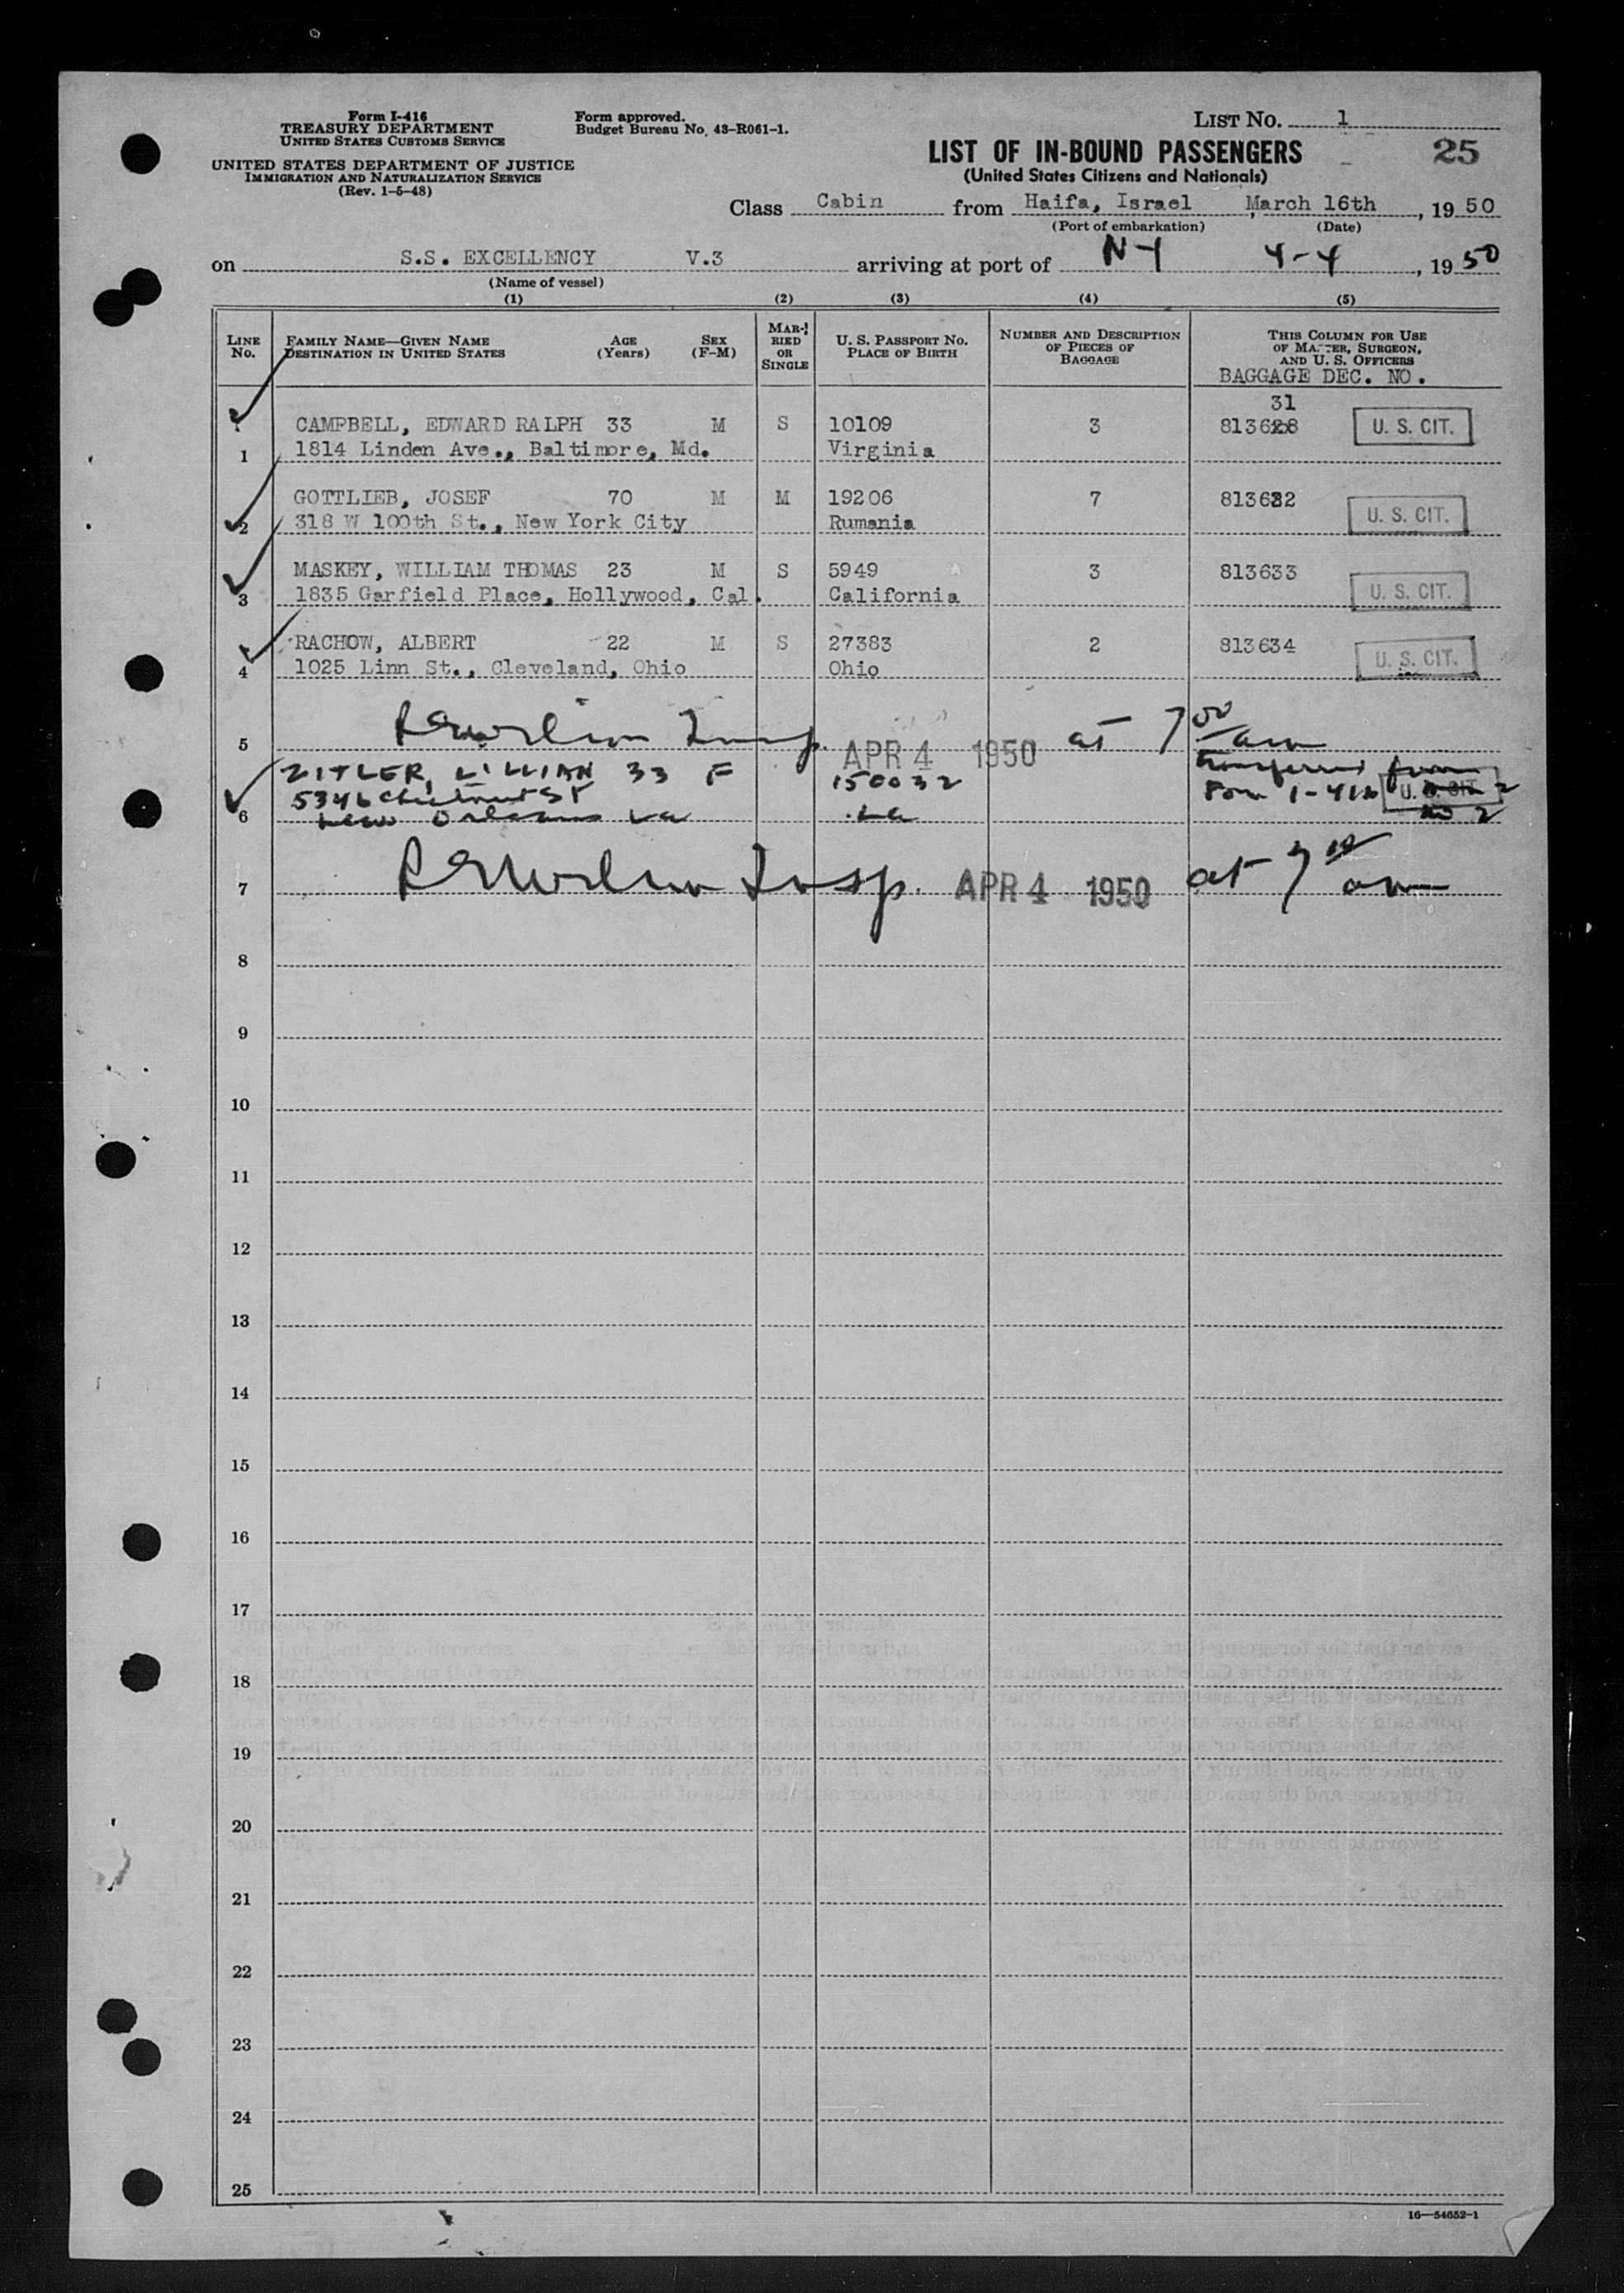 Form I-416
TREASURY DEPARTMENT
UNITED STATES CUSTOMS SERVICE
UNITED STATES DEPARTMENT OF JUSTICE
IMMIGRATION AND NATURALIZATION SERVICE
(Rev. 1-5-48)
Form approved.
Budget Bureau No. 43-R061-1.
LIST NO. 1
LIST OF IN-BOUND PASSENGERS 25
(United States Citizens and Nationals)
Class Cabin from Haifa, Israel March 16th, 1950
(Port of embarkation) (Date)
on S.S. EXCELLENCY V.3 arriving at port of NY 4-4, 1950
(Name of vessel)
(1) (2) (3) (4) (5)
LINE NO. FAMILY NAME—GIVEN NAME DESTINATION IN UNITED STATES AGE (Years) SEX (F-M) MARRIED OR SINGLE U. S. PASSPORT NO. PLACE OF BIRTH NUMBER AND DESCRIPTION OF PIECES OF BAGGAGE THIS COLUMN FOR USE OF MASTER, SURGEON, AND U. S. OFFICERS
BAGGAGE DEC. NO.
31
CAMPBELL, EDWARD RALPH 33 M S 10109 3 813628 U. S. CIT.
1 1814 Linden Ave., Baltimore, Md. Virginia
GOTTLIEB, JOSEF 70 M M 19206 7 813632 U. S. CIT.
2 318 W 100th St., New York City Rumania
MASKEY, WILLIAM THOMAS 23 M S 5949 3 813633 U. S. CIT.
3 1835 Garfield Place, Hollywood, Cal. California
RACHOW, ALBERT 22 M S 27383 2 813634 U. S. CIT.
4 1025 Linn St., Cleveland, Ohio Ohio
5 Insp. APR 4 1950 at 7 00 am
ZITLER, LILLIAN 33 F 150032 transferred from
5346 Chestnut St Form I-416 U. S. CIT. 2
6 New Orleans La La no 2
7 Insp. APR 4 1950 at 7 am
8
9
10
11
12
13
14
15
16
17
18
19
20
21
22
23
24
25
16—54652-1